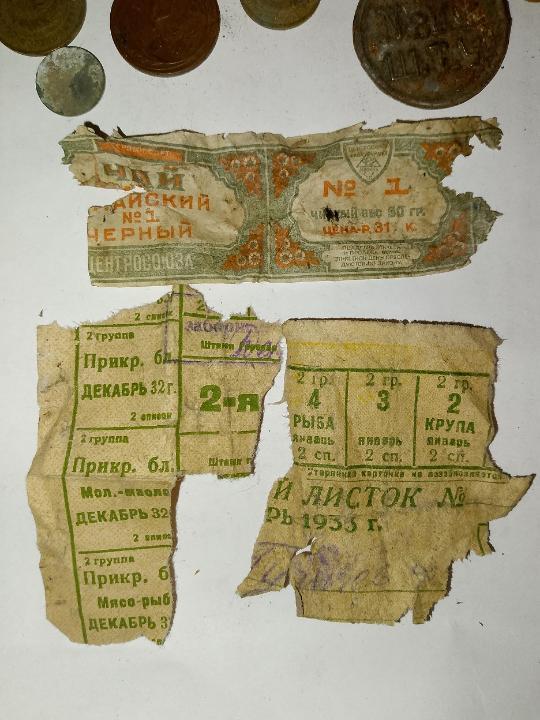 ЧАЙ
АЙСКИЙ
№ 1
ЧЕРНЫЙ
ЦЕНТРОСОЮЗА
№ 1
ЧИСТЫЙ ВЕС 50 ГР.
ЦЕНА-Р. 31 К.
2 список
2 группа
Прикр. бл.
ДЕКАБРЬ 32 г.
2 список
2 группа
Прикр. бл.
Мол.-
ДЕКАБРЬ 32
2 список
2 группа
Прикр. б
Мясо-рыб
ДЕКАБРЬ 3
заборн
Штамп
2-я
Штамп
2 гр.
4
РЫБА
январь
2 сп.
2 гр.
3
январь
2 сп.
2 гр.
2
КРУПА
январь
2 сп.
Утерянная карточка не возобновляется
Й ЛИСТОК №
РЬ 1933 г.